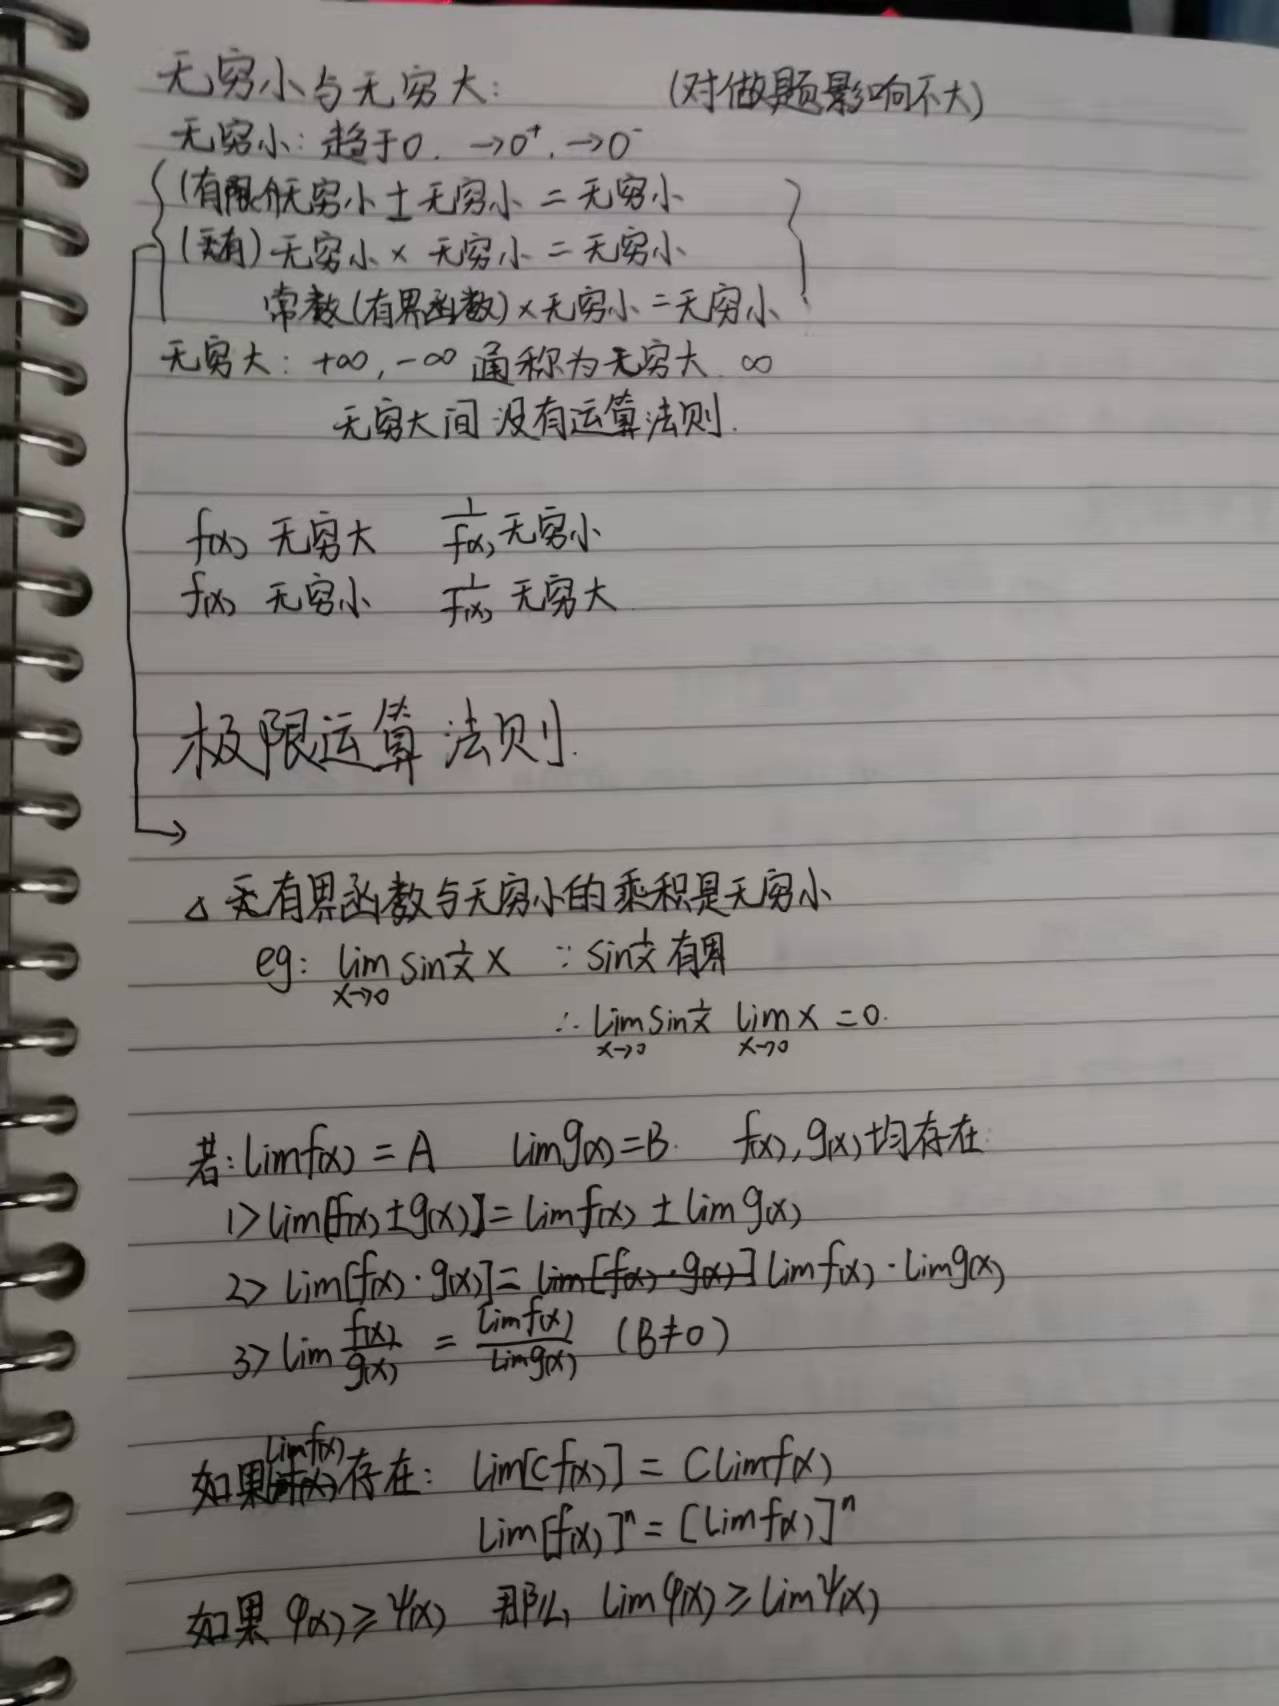 无穷小与无穷大: (对做题影响不大)
无穷小: 趋于0. →0⁺, →0⁻
(有限个)无穷小 ± 无穷小 = 无穷小
(有) 无穷小 × 无穷小 = 无穷小
常数(有界函数)×无穷小=无穷小
无穷大: +∞, -∞ 通称为无穷大 ∞
无穷大间 没有运算法则.
f(x) 无穷大 1/f(x) 无穷小
f(x) 无穷小 1/f(x) 无穷大
极限运算法则.
△ 有界函数与无穷小的乘积是无穷小
eg: lim x→0 sin 1/x x ∵ sin 1/x 有界
∴ lim x→0 sin 1/x lim x→0 x = 0.
若: lim f(x) = A lim g(x) = B. f(x), g(x) 均存在
1> lim[f(x) ± g(x)] = lim f(x) ± lim g(x)
2> lim[f(x) · g(x)] = lim[f(x) · g(x)] lim f(x) · lim g(x)
3> lim f(x)/g(x) = lim f(x)/lim g(x) (B≠0)
如果 lim f(x) 存在: lim[c f(x)] = C lim f(x)
lim[f(x)]ⁿ = [lim f(x)]ⁿ
如果 φ(x) ≥ ψ(x) 那么, lim φ(x) ≥ lim ψ(x)